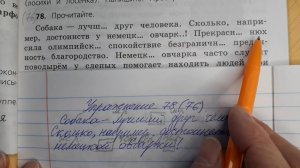 (лосихи и лосенка).
78. Прочитайте.
Собака — лучш... друг человека. Сколько, напри-
мер, достоинств у немецк... овчарк..! Прекрасн... нюх
сила олимпийск... спокойствие безграничн... преда
ность благородство. Немецк... овчарка часто служит
поводырём у слепых помогает находить людей
Упражнение 78 (76)
Собака – лучший друг
Сколько, например, достоинств
немецкой овчарки!